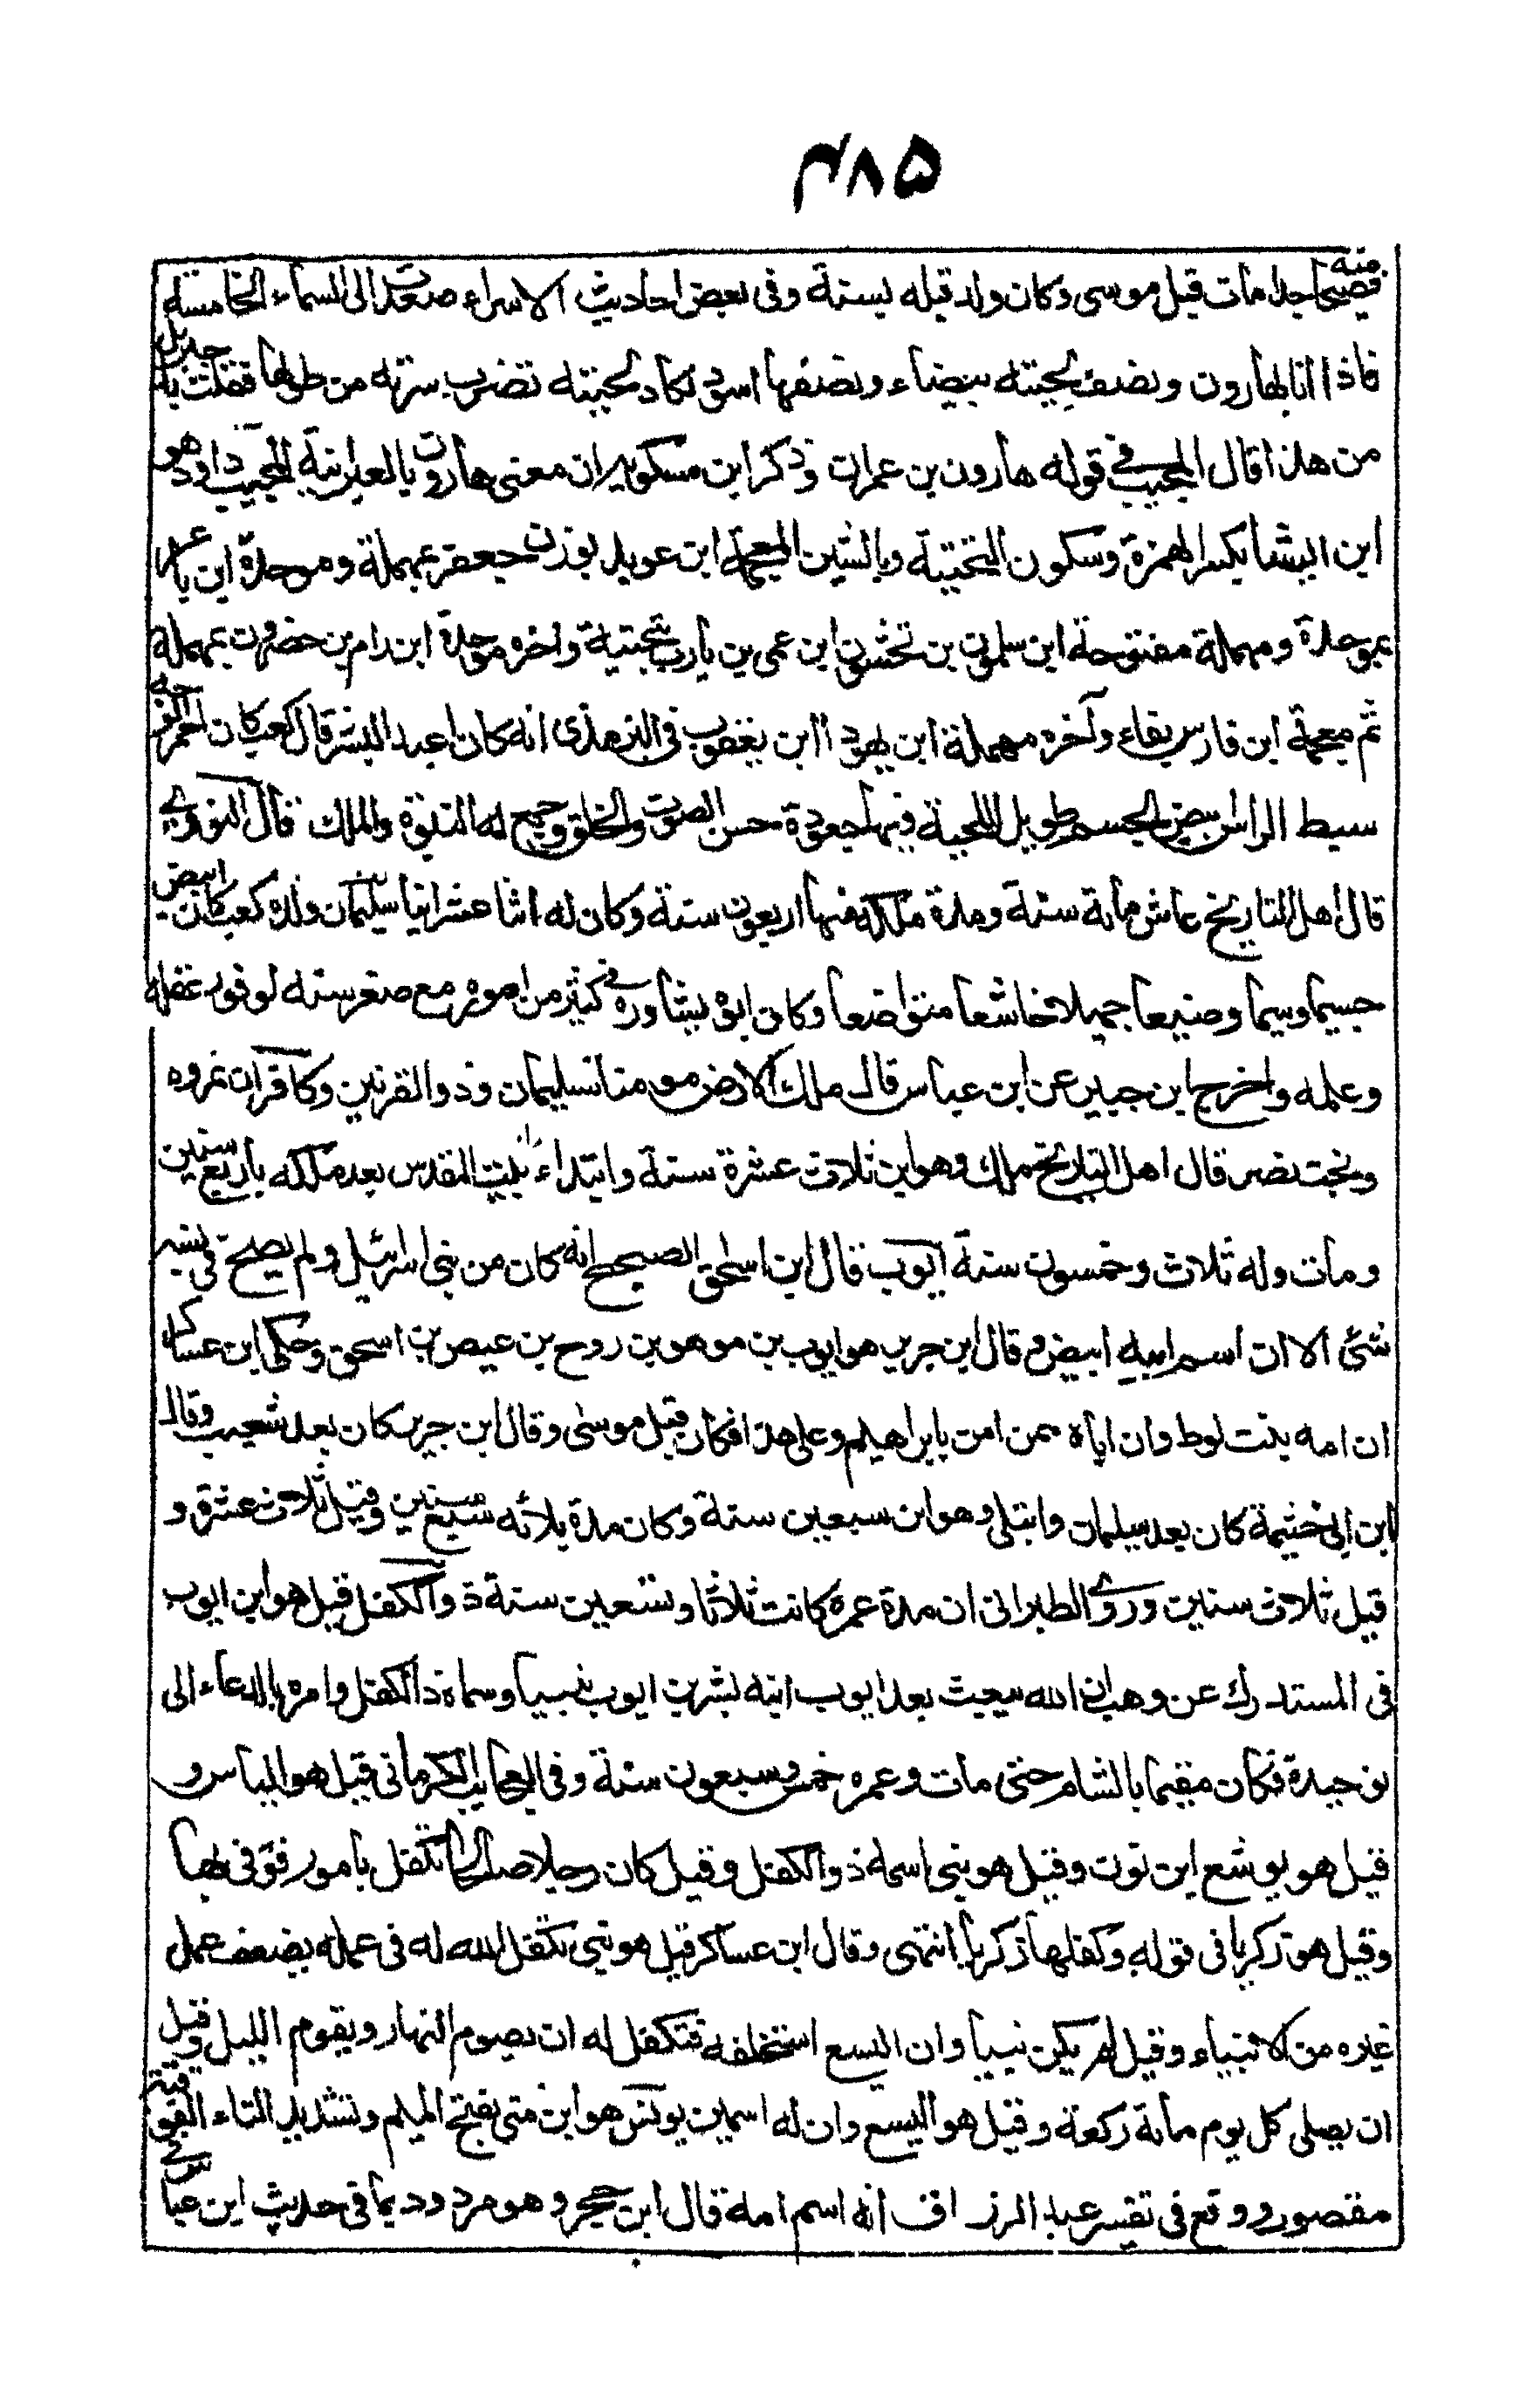 ۴۸۵
منه فصيحا جدا مات قبل موسى وكان ولد قبله بسنة وفى بعض احاديث الاسراء صعدت الى السماء الخامسة
فاذا انا بهارون ونصف لحيته بيضاء ونصفها اسود تكاد لحيته تضرب سرته من طولها فقلت يا جبريل
من هذا قال المحبب فى قوله هارون بن عمران وذكر ابن مسكويه ان معنى هارون بالعبرانية المحبب داود هو
ابن ايشا بكسر الهمزة وسكون التحتية وبالشين المعجمة ابن عوبد بوزن جعفر بمهملة وموحدة ابن باعر
بموحدة ومهملة مفتوحة ابن سلمون بن نخشون ابن عمى بن يارب بتحتية واخره موحدة ابن رام بن حضرون بمهملة
ثم معجمة ابن فارس بفاء وآخره مهملة ابن يهودا ابن يعقوب فى الترمذى انه كان اعبد البشر قال كعب كان احمر الوجه
سبط الراس ابيض الجسم طويل اللحية فيها جعودة حسن الصوت والخلق وجمع له النبوة والملك قال النووى
قال اهل التاريخ عاش مأية سنة ومدة ملكه منها اربعون سنة وكان له اثنا عشر ابنا سليمان ولده كعب كان ابيض
جسيما وسيما وضيعا جميلا خاشعا متواضعا وكان ابوه يشاوره فى كثير من اموره مع صغر سنه لوفور عقله
وعلمه واخرج ابن جبير عن ابن عباس قال ملك الارض مومنان سليمان وذو القرنين وكافران نمروه
وبخت نصر قال اهل التاريخ ملك وهو ابن ثلاث عشرة سنة وابتداء بناء بيت المقدس بعد ملكه باربع سنين
ومات وله ثلاث وخمسون سنة ايوب قال ابن اسحق الصحيح انه كان من بنى اسرائيل ولم يصح فى نسبه
شئى الا ان اسم ابيه ابيض وقال ابن جرير هو ايوب بن موهو بن روح بن عيص بن اسحق وحكى ابن عساكر
ان امه بنت لوط وان اباه ممن امن بابراهيم وعلى هذا فكان قبل موسى وقال ابن جرير كان بعد شعيب وقال
ابن ابى خثيمة كان بعد سليمان وابتلى وهو ابن سبعين سنة وكان مدة بلائه سبع سنين وقيل ثلاث عشرة و
قيل ثلاث سنين وروى الطبرانى ان مدة عمره كانت ثلاثا وتسعين سنة ذوالكفل قيل هو ابن ايوب
فى المستدرك عن وهب ان الله بعث بعد ايوب ابنه بشر بن ايوب نبيا وسماه ذا الكفل وامره بالدعاء الى
توحيده فكان مقيما بالشام حتى مات وعمره خمس وسبعون سنة وفى العجائب للكرمانى قيل هو الياس و
قيل هو يوشع ابن نون وقيل هو نبى اسمه ذو الكفل وقيل كان رجلا صالحا تكفل بامور فوفى بها
وقيل هو زكريا فى قوله وكفلها زكريا انتهى وقال ابن عساكر قيل هو نبى تكفل الله له فى عمله بضعف عمل
غيره من الانبياء وقيل لم يكن نبيا وان اليسع استخلفه فتكفل له ان يصوم النهار ويقوم الليل وقيل
ان يصلى كل يوم مأية ركعة وقيل هو اليسع وان له اسمين يونس هو ابن متى بفتح الميم وتشديد التاء الفوقية
مقصور ووقع فى تفسير عبد الرزاق انه اسم امه قال ابن حجر وهو مردود بما فى حديث ابن عباس